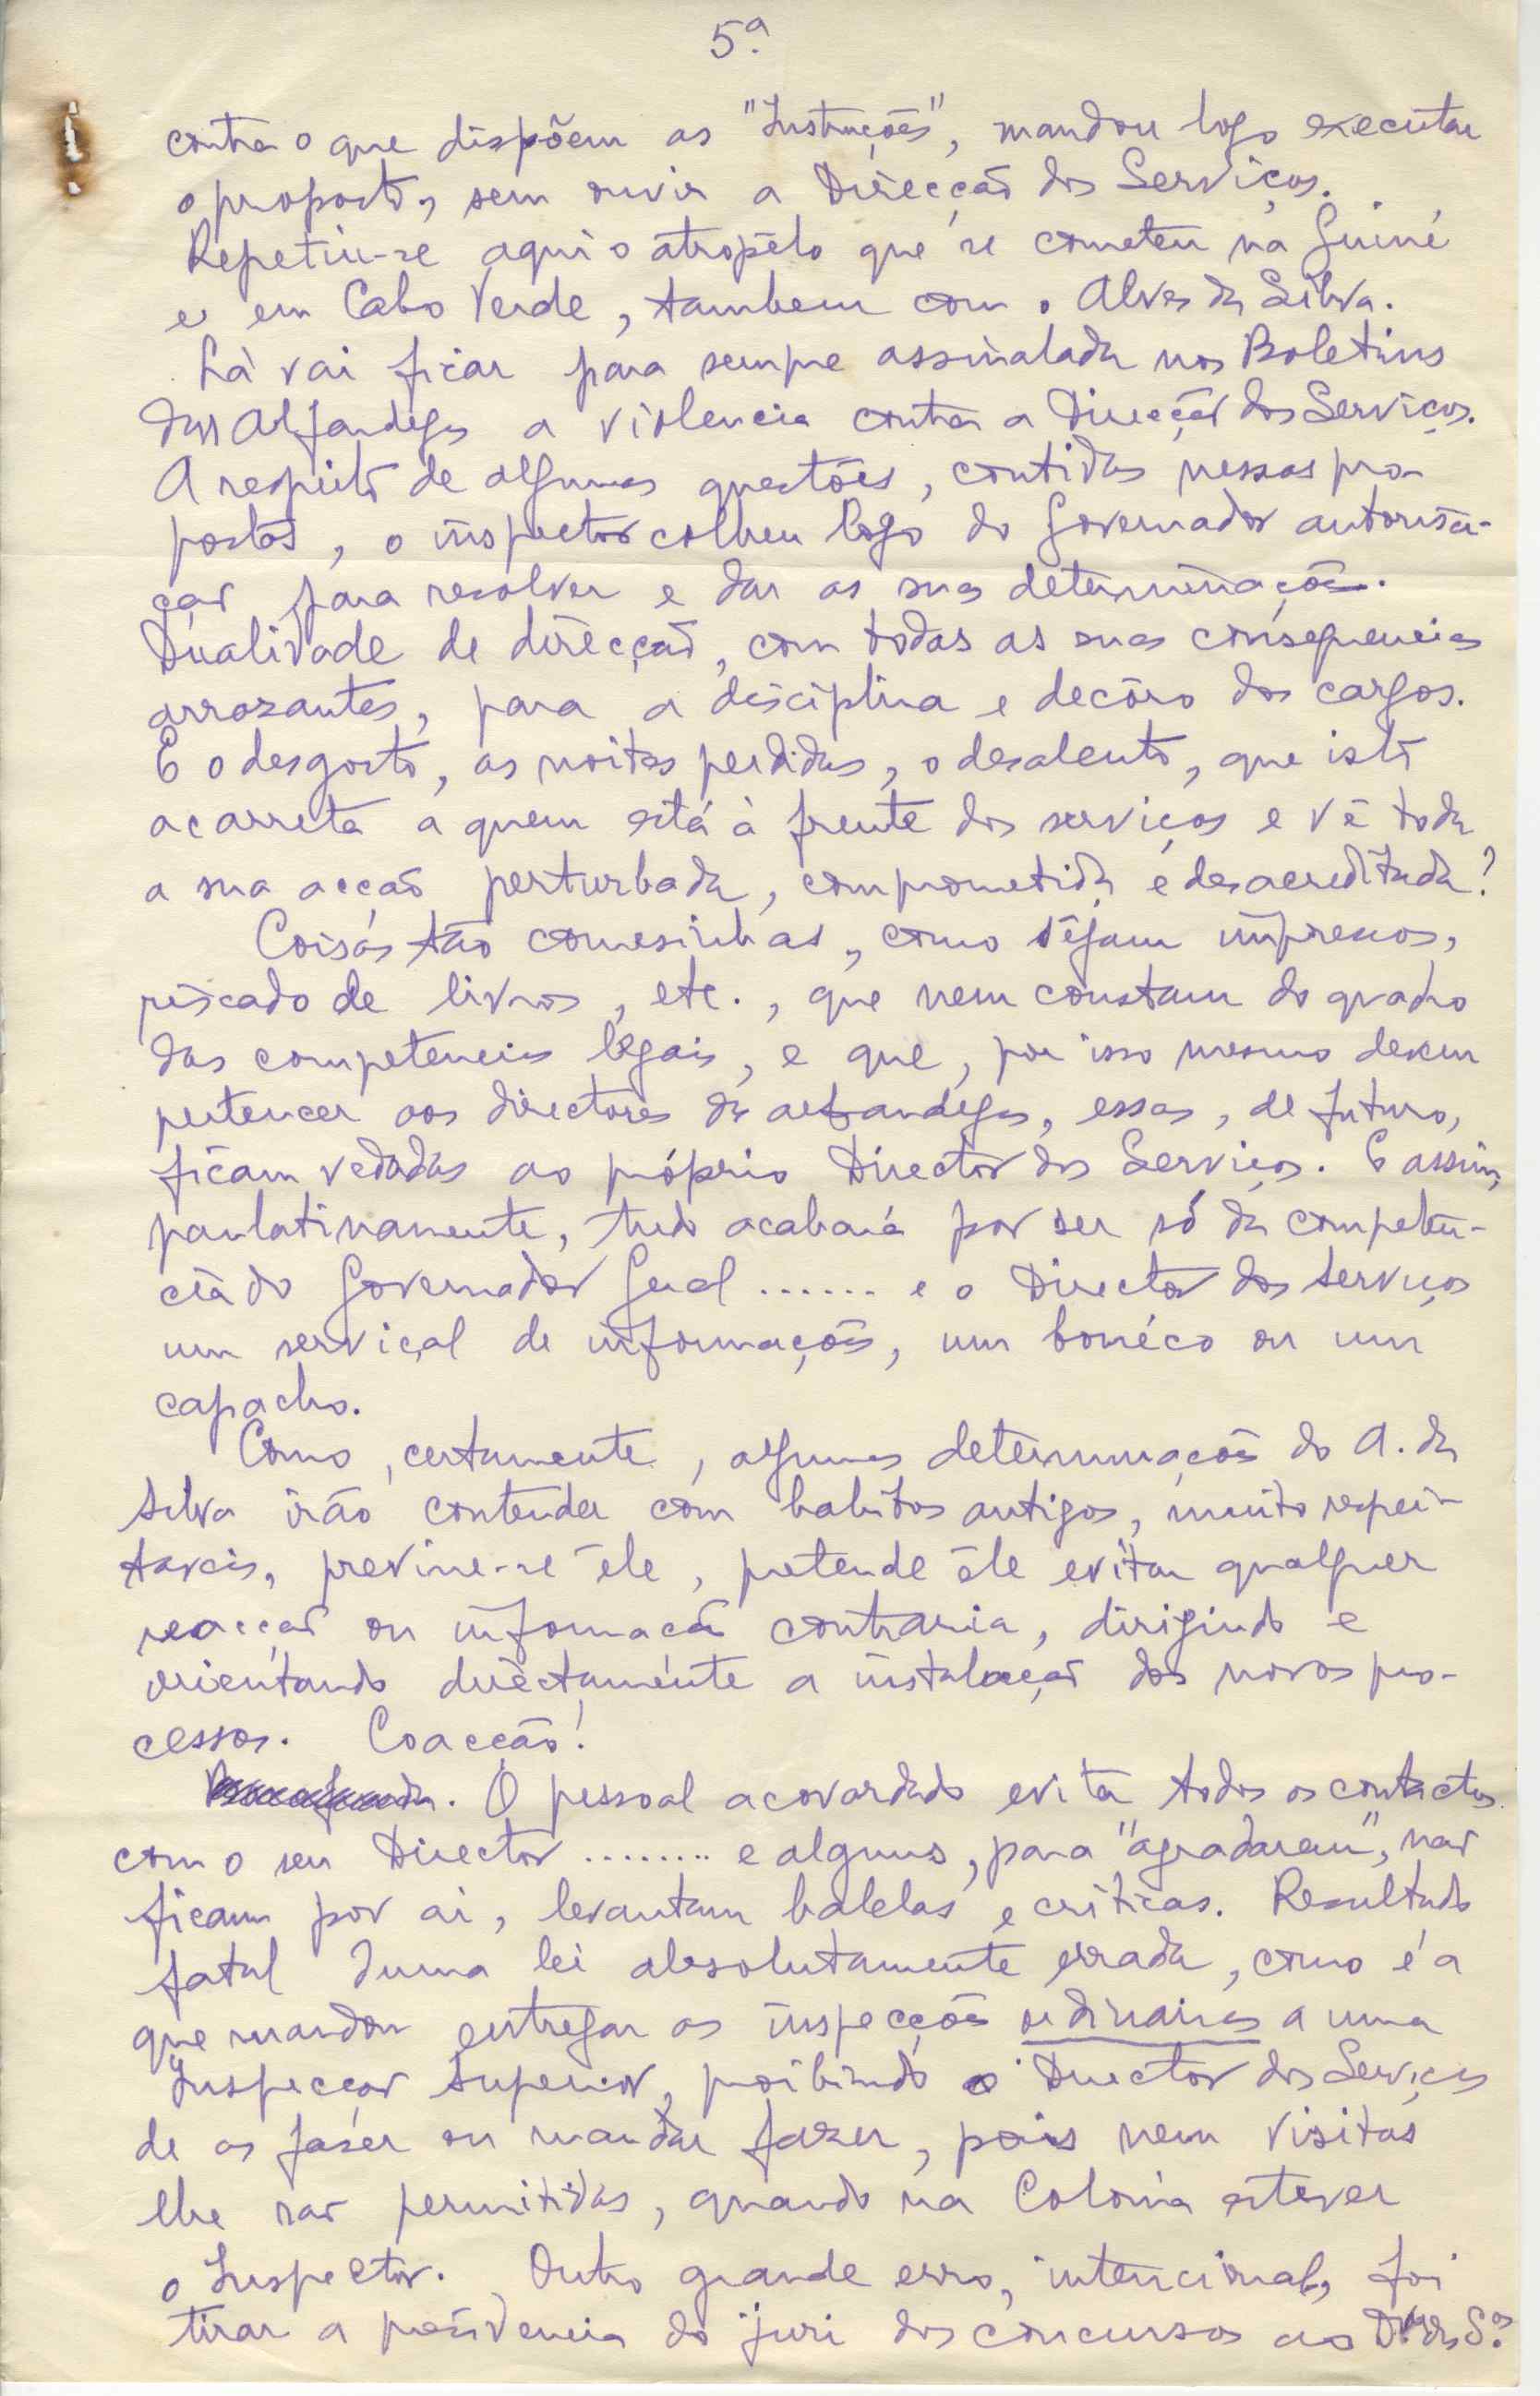 5ª
contra o que dispõem as "Instruções", mandou logo executar
o proposto, sem ouvir a Direcção dos Serviços.
Repetiu-se aqui o atropêlo que se cometeu na Guiné
e em Cabo Verde, tambem com o Alves da Silva.
Lá vai ficar para sempre assinalada nos Boletins
das Alfandegas a violencia contra a Direcção dos Serviços.
A respeito de algumas questões, contidas nessas pro-
postas, o inspector colheu logo do Governador autorisa-
ção para resolver e dar as suas determinações.
Dualidade de direcção, com todas as suas consequencias
arrozantes, para a disciplina e decôro dos cargos.
E o desgosto, as noites perdidas, o desalento, que isto
acarreta a quem está à frente dos serviços e vê toda
a sua acção perturbada, comprometida e desacreditada?
Coisas tão comesinhas, como sêjam impressos,
riscado de livros, etc., que nem constam do quadro
das competencias legais, e que, por isso mesmo devem
pertencer aos directores de alfandegas, essas, de futuro,
ficam vedadas ao próprio Director dos Serviços. E assim,
paulatinamente, tudo acabará por ser só da competen-
cia do Governador Geral ...... e o Director dos Serviços
um serviçal de informações, um bonéco ou um
capacho.
Como, certamente, algumas determinações do A. da
Silva irão contender com habitos antigos, muito respei-
taveis, previne-se êle, pretende êle evitar qualquer
reacção ou informação contraria, dirigindo e
orientando directamente a instalação dos novos pro-
cessos. Coacção!
O pessoal acovardado evita todos os contactos
com o seu Director ........ e alguns, para "agradarem", não
ficam por ai, levantam balelas e criticas. Resultado
fatal duma lei absolutamente errada, como é a
que mandou entregar as inspecções ordinarias a uma
Inspecção Superior, proibindo o Director dos Serviços
de as fazer ou mandar fazer, pois nem visitas
lhe são permitidas, quando na Colonia estever
o Inspector. Outro grande erro, intencional, foi
tirar a presidencia do juri dos concursos ao D.or dos S.os